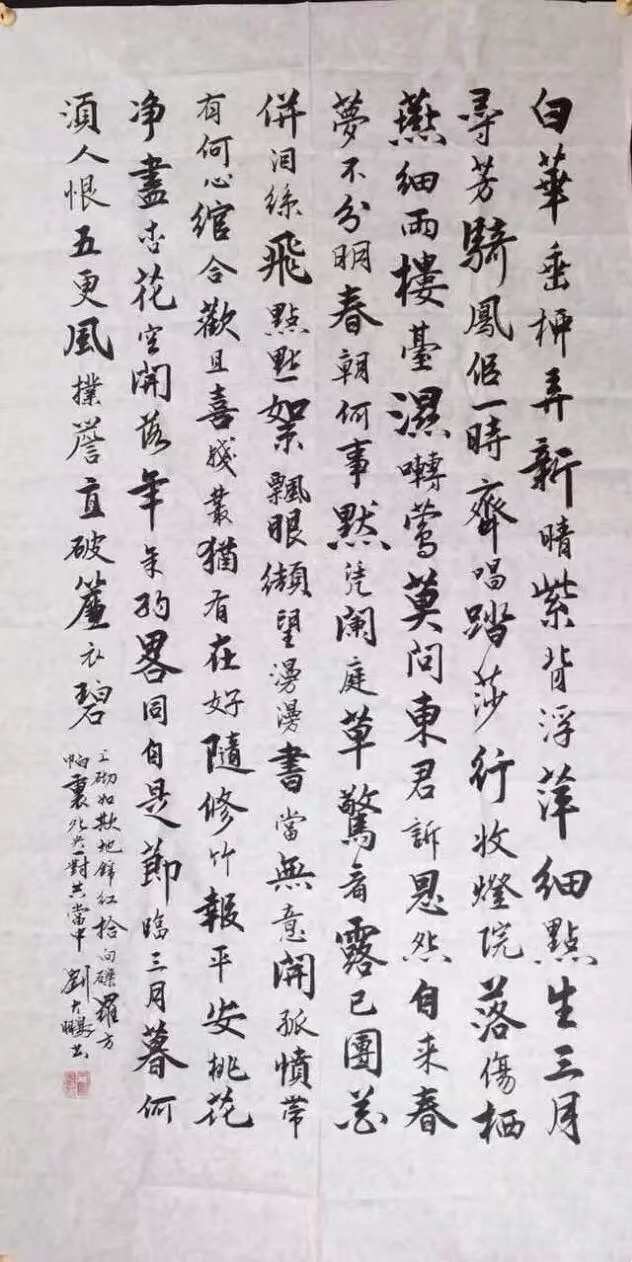 白華垂柳弄新晴紫背浮萍細點生三月
尋芳騎鳳侶一時齊唱踏莎行收燈院落傷栖
燕細雨樓臺濕囀鶯莫問東君訴恩怨自来春
夢不分明春朝何事默凭闌庭草驚看露已團花
併泪絲飛點點絮飄眼纈望漫漫書當無意開孤憤帶
有何心綰合歡且喜殘叢猶有在好隨修竹報平安桃花
净盡杏花空開落年年約畧同自是節臨三月暮何
須人恨五更風撲簷直破簾衣碧
上砌如欺地錦紅拾向羅方
帕裏一對共當中劉大鵬书